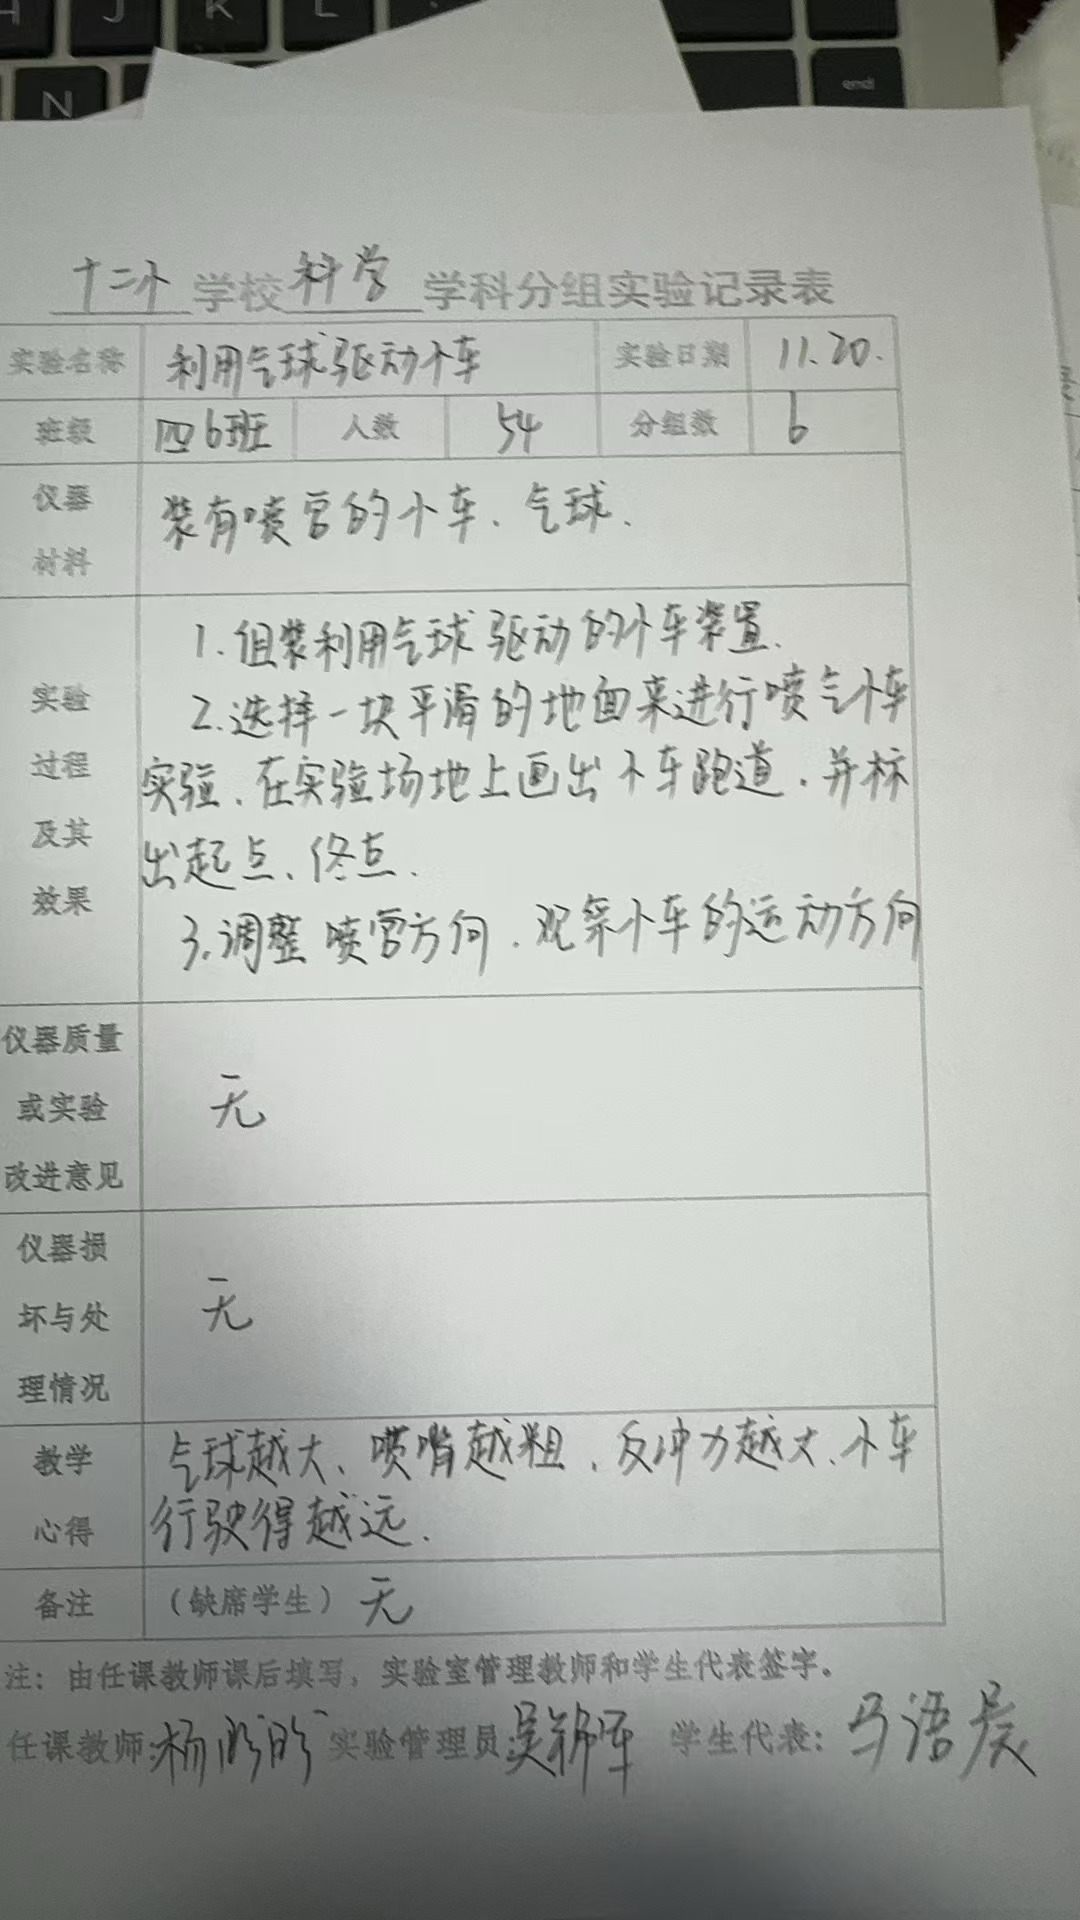 J K L
N end
十二小 学校 科学 学科分组实验记录表
实验名称 利用气球驱动小车 实验日期 11.20.
班级 四6班 人数 54 分组数 6
仪器
材料
装有喷管的小车、气球.
实验
过程
及其
效果
1.组装利用气球驱动的小车装置.
2.选择一块平滑的地面来进行喷气小车
实验、在实验场地上画出小车跑道,并标
出起点、终点.
3.调整喷管方向,观察小车的运动方向
仪器质量
或实验
改进意见
无
仪器损
坏与处
理情况
无
教学
心得
气球越大、喷嘴越粗、反冲力越大、小车
行驶得越远.
备注 (缺席学生) 无
注:由任课教师课后填写,实验室管理教师和学生代表签字。
任课教师: 杨 实验管理员: 吴 学生代表: 马语